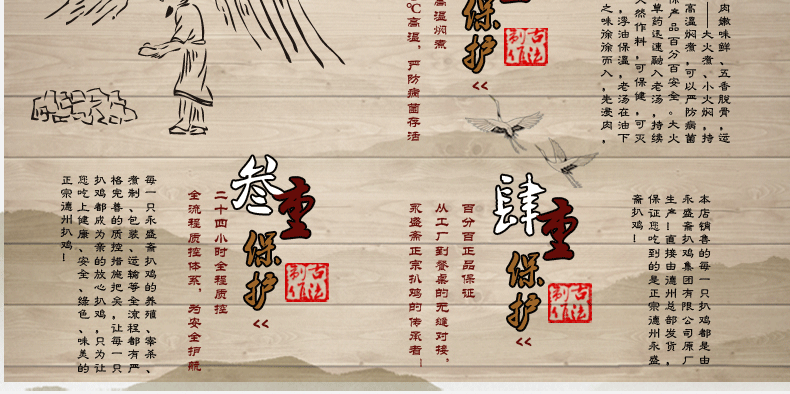 肉嫩味鲜、五香脱骨，运
——大火煮、小火焖，持
高温焖煮，可以严防病菌
保产品百分百安全。大火
草药迅速融入老汤，持续
天然作料，可保健，可灭
，浮油保温，老汤在油下
之味徐徐而入，先浸肉，
保护
古法
制作
<<
高温焖煮
℃高温，严防病菌存活
本店销售的每一只扒鸡都是由
永盛斋扒鸡集团有限公司原厂
生产！直接由德州总部发货，
保证您吃到的是正宗德州永盛
斋扒鸡！
肆重
保护
古法
制作
<<
百分百正品保证
从工厂到餐桌的无缝对接。
永盛斋正宗扒鸡的传承者！
叁重
保护
古法
制作
<<
二十四小时全程质控
全流程质控体系，为安全护航
每一只永盛斋扒鸡的养殖、宰杀、
煮制、包装、运输等全流程都有严
格完善的质控措施把关，让每一只
扒鸡都成为亲的放心扒鸡，只为让
您吃上健康、安全、绿色、味美的
正宗德州扒鸡！